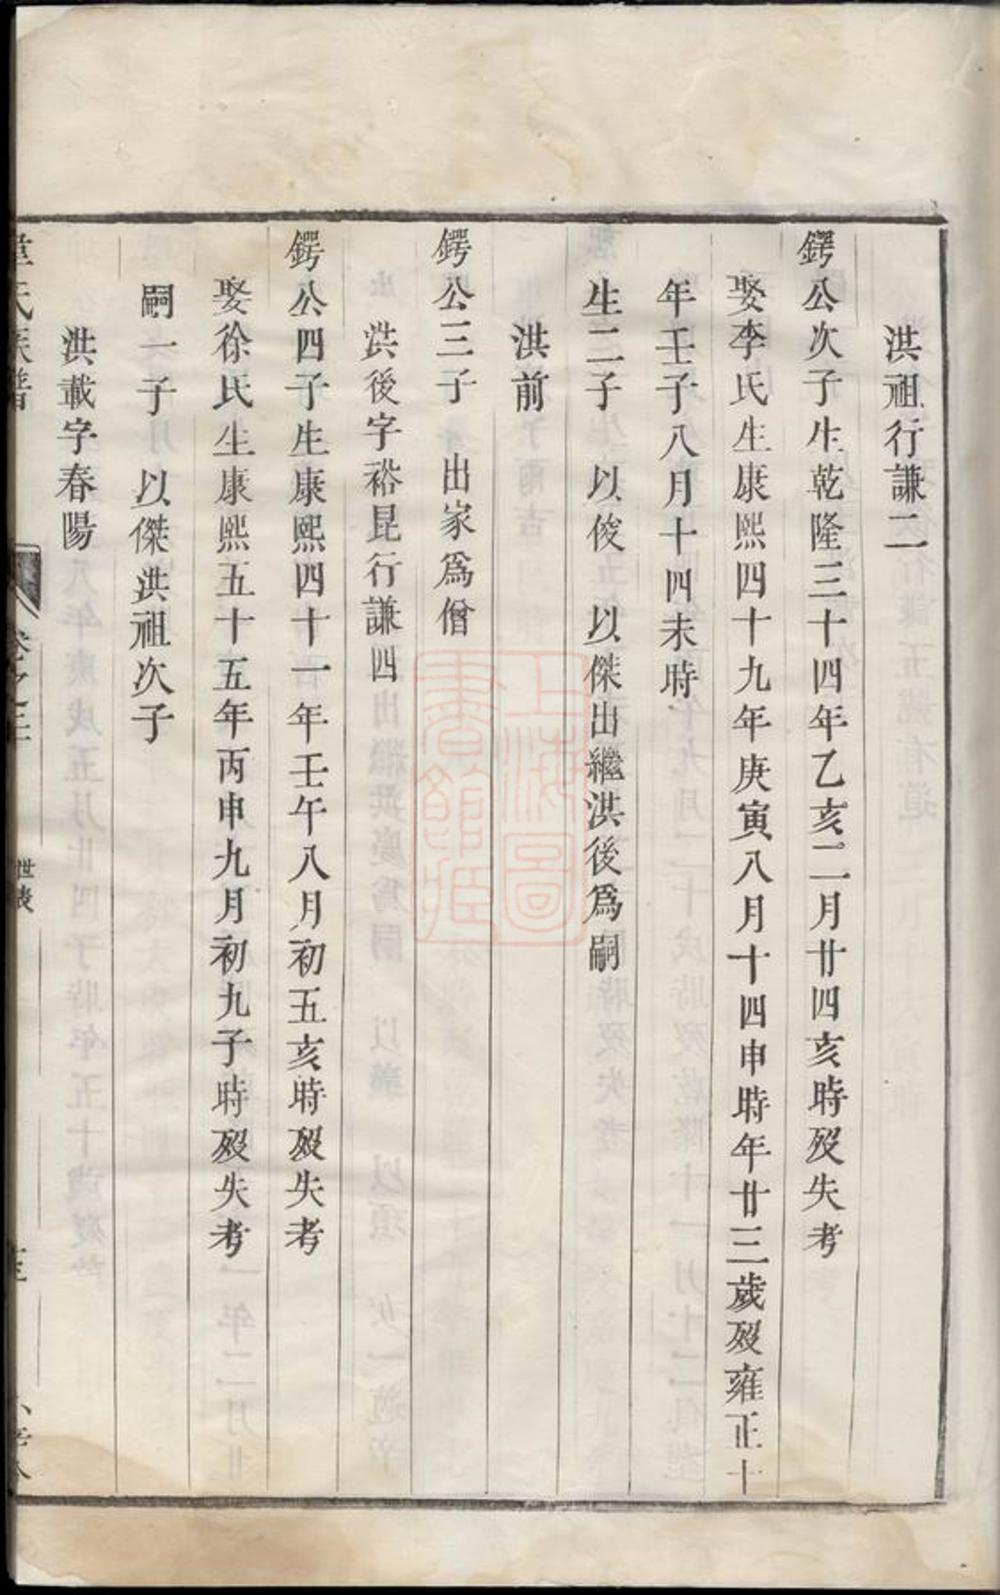 洪祖行謙二
鍔公次子生乾隆三十四年乙亥二月廿四亥時歿失考
娶李氏生康熙四十九年庚寅八月十四申時年廿三歲歿雍正十
年壬子八月十四未時
生二子 以俊 以傑出繼洪後爲嗣
洪前
鍔公三子 出家爲僧
洪後字裕昆行謙四
鍔公四子生康熙四十一年壬午八月初五亥時歿失考
娶徐氏生康熙五十五年丙申九月初九子時歿失考
嗣一子 以傑洪祖次子
洪載字春陽
氏族譜
世表
上海圖書館藏